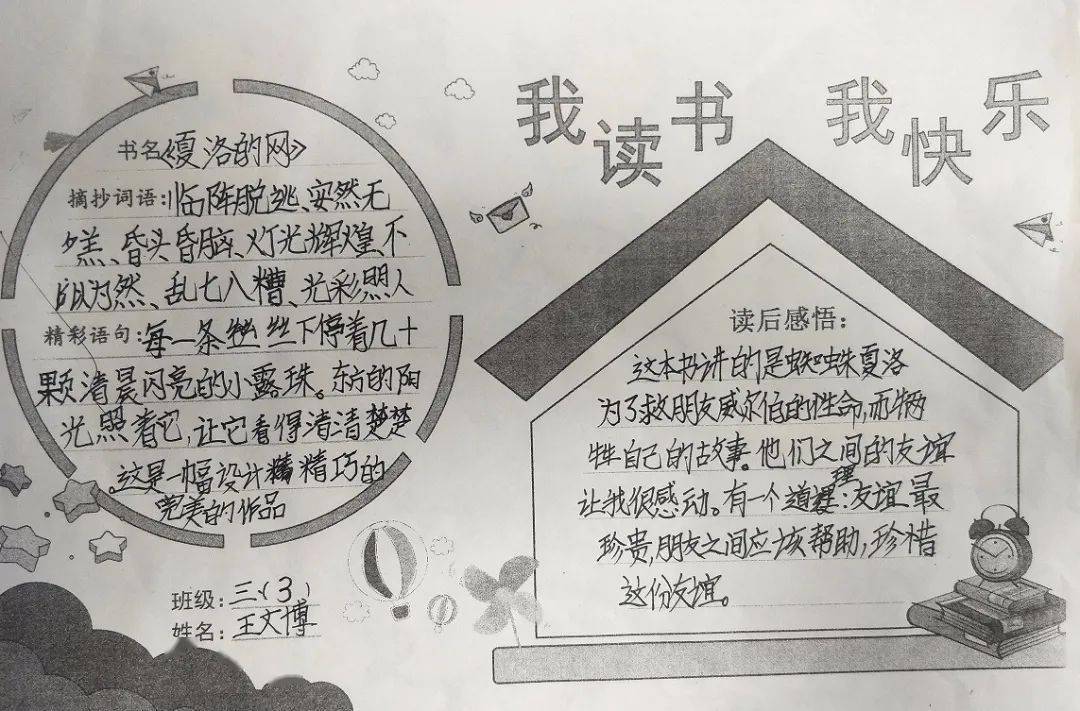 我读书 我快乐
书名《夏洛的网》
摘抄词语:临阵脱逃、安然无
恙、昏头昏脑、灯光辉煌、不
以为然、乱七八糟、光彩照人
精彩语句:每一条丝下停着几十
颗清晨闪亮的小露珠。东方的阳
光照着它,让它看得清清楚楚
。这是一幅设计精巧的
完美的作品
班级:三(3)
姓名:王文博
读后感悟:
这本书讲的是蜘蛛夏洛
为了救朋友威尔伯的性命,而牺
牲自己的故事。他们之间的友谊
让我很感动。有一个道理:友谊最
珍贵,朋友之间应该帮助,珍惜
这份友谊。